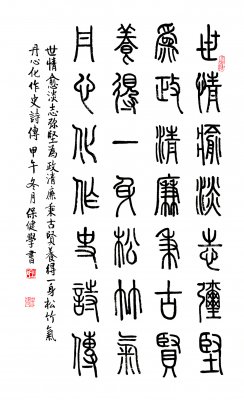 世情愈淡志彌堅
為政清廉秉古賢
養得一身松竹氣
丹心化作史詩傳
世情愈淡志弥堅為政清廉秉古賢養得一身松竹氣
丹心化作史詩傳 甲午冬月保健學書